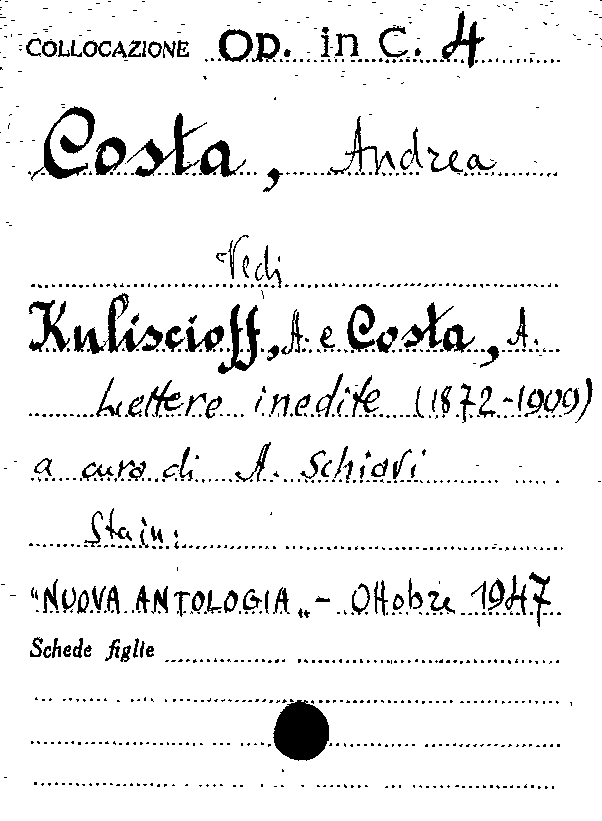 COLLOCAZIONE OD. in C. 4
Costa, Andrea
Vedi
Kuliscioff, A. e Costa, A.
Lettere inedite (1872-1909)
a cura di A. Schiavi
Sta in:
"NUOVA ANTOLOGIA„ - Ottobre 1947
Schede figlie